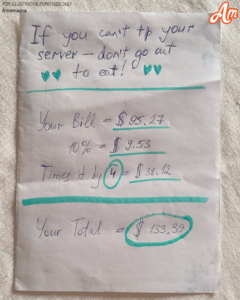 FOR ILLUSTRATIVE PURPOSES ONLY
Amomama
Am
If you can't tip your
server — don't go out
to eat!
Your Bill = $95.27
10% = $9.53
Times it by 4 = $38.12
Your Total = $133,39